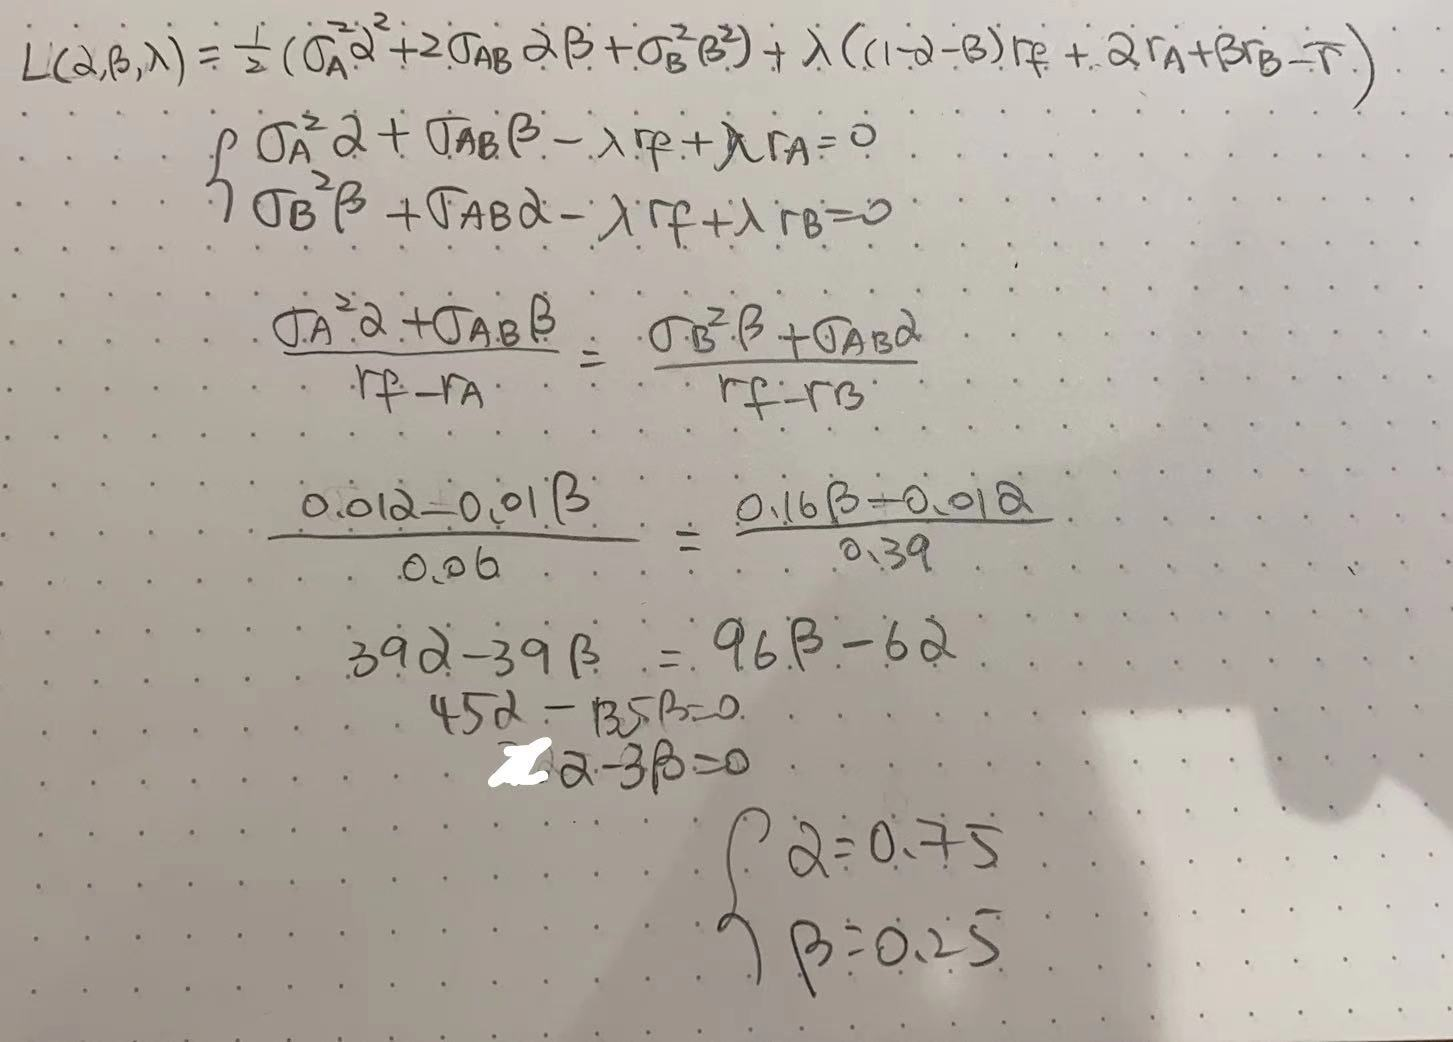 L(α,β,λ) = 1/2 (σA²α² + 2σAB αβ + σB²β²) + λ((1-α-β)rf + αrA + βrB - r̄)
{ σA²α + σABβ - λrf + λrA = 0
σB²β + σABα - λrf + λrB = 0
(σA²α + σABβ)/(rf - rA) = (σB²β + σABα)/(rf - rB)
(0.01α - 0.01β)/0.06 = (0.16β - 0.01α)/0.39
39α - 39β = 96β - 6α
45α - 135β = 0
α - 3β = 0
{ α = 0.75
β = 0.25